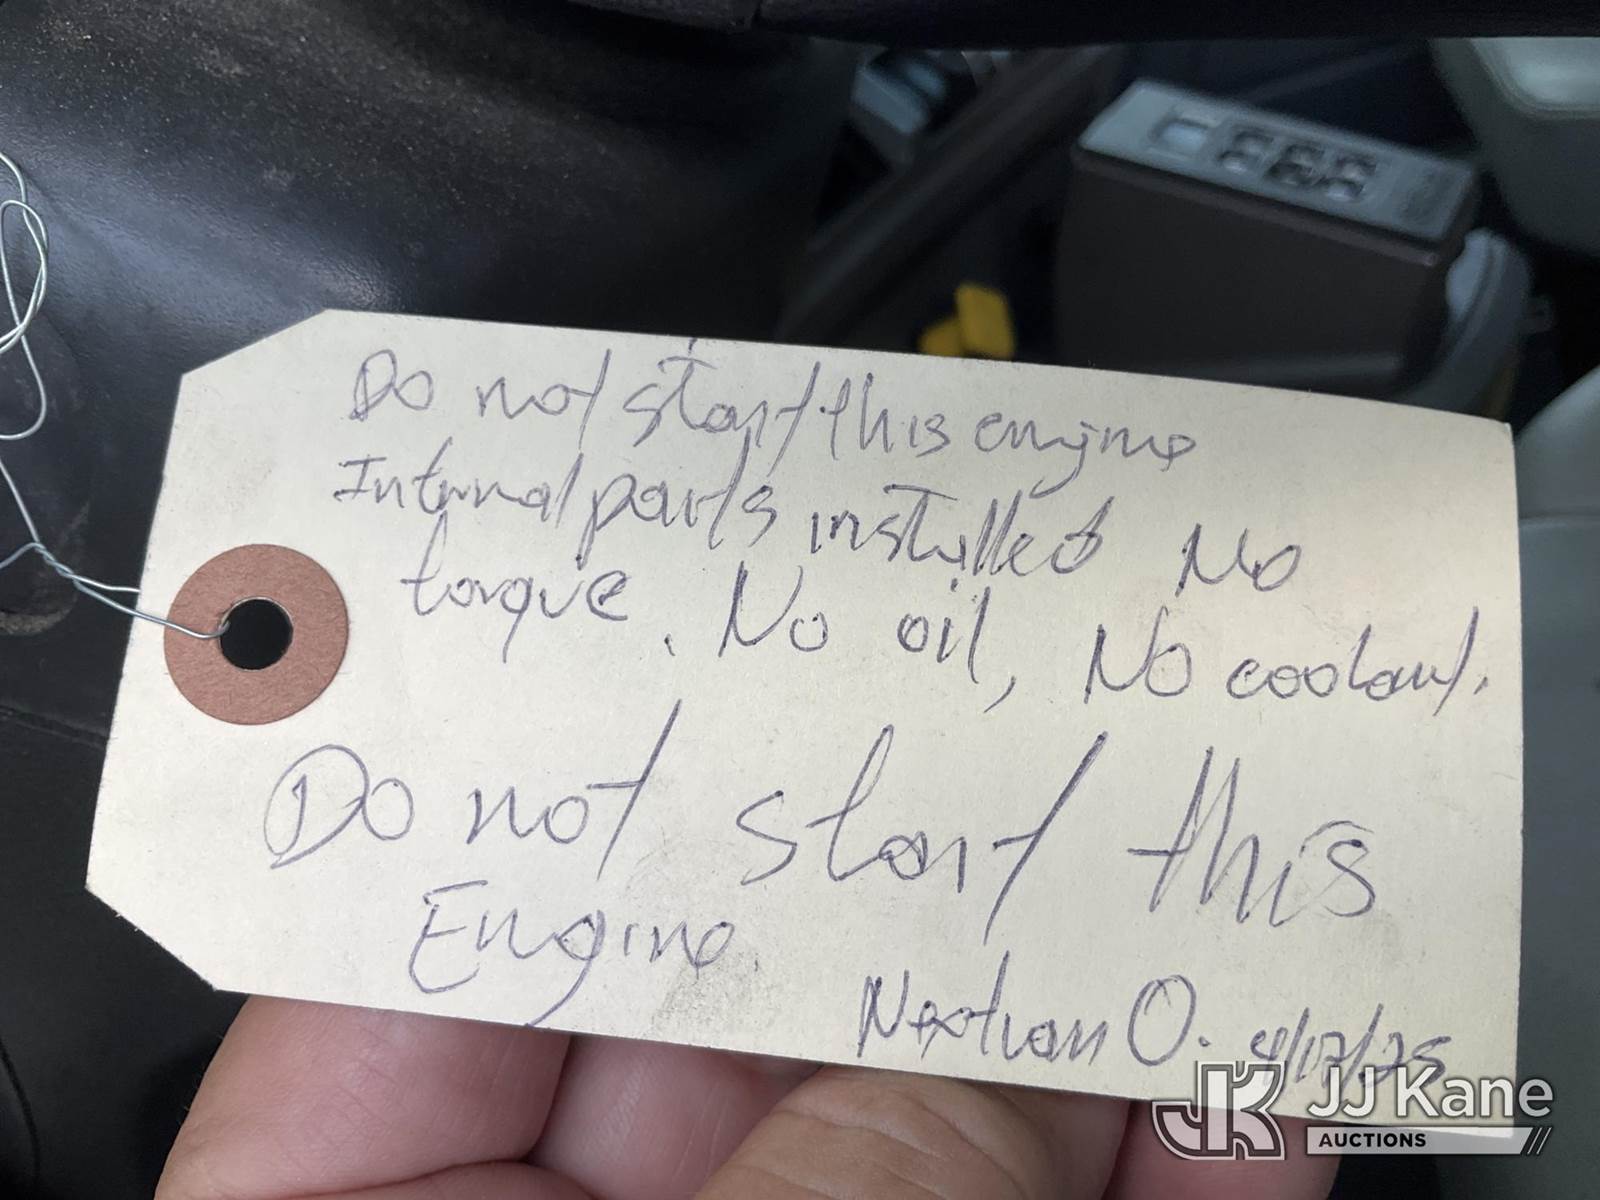 Do not start this engine
Internal parts installed No
torque. No oil, No coolant.
Do not start this
Engine.
O. /17/25
JJ Kane
AUCTIONS